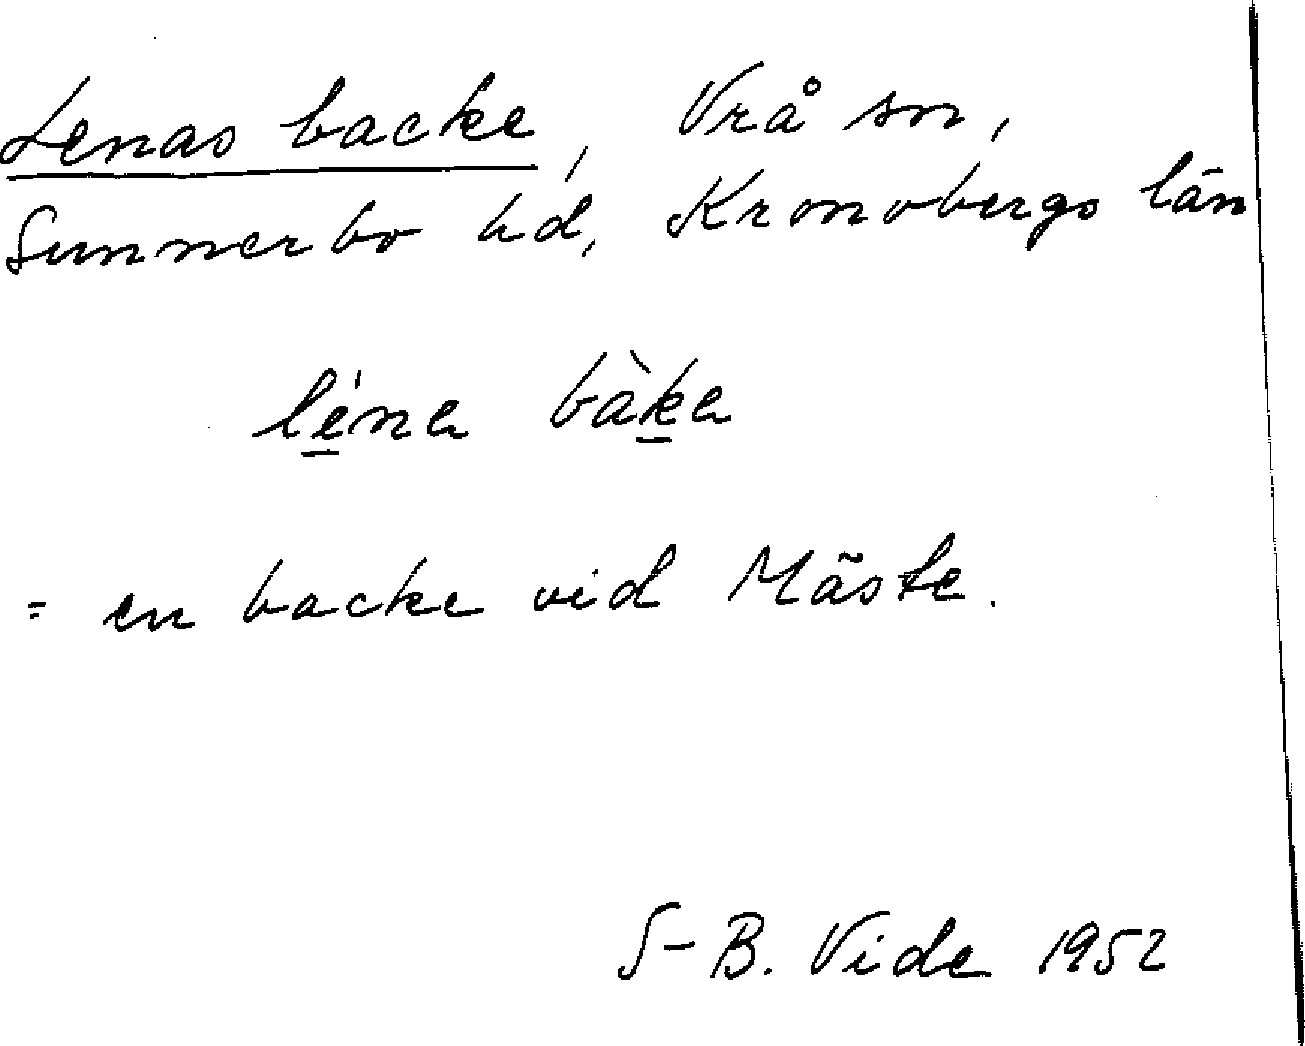 Lenas backe, Vrå sn,
Sunnerbo hd, Kronobergs län
lèna bàka
= en backe vid Mäste.
S-B. Vide 1952